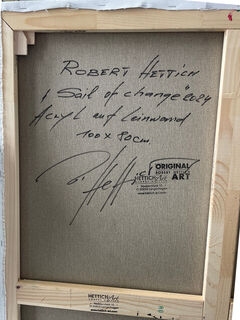 ROBERT HETTICH
„Sail of change" 2024
Acryl auf Leinwand
100 x 80cm
R. Hettich
ORIGINAL
ROBERT HETTICH
ART
HETTICH Art
HETTICH Art